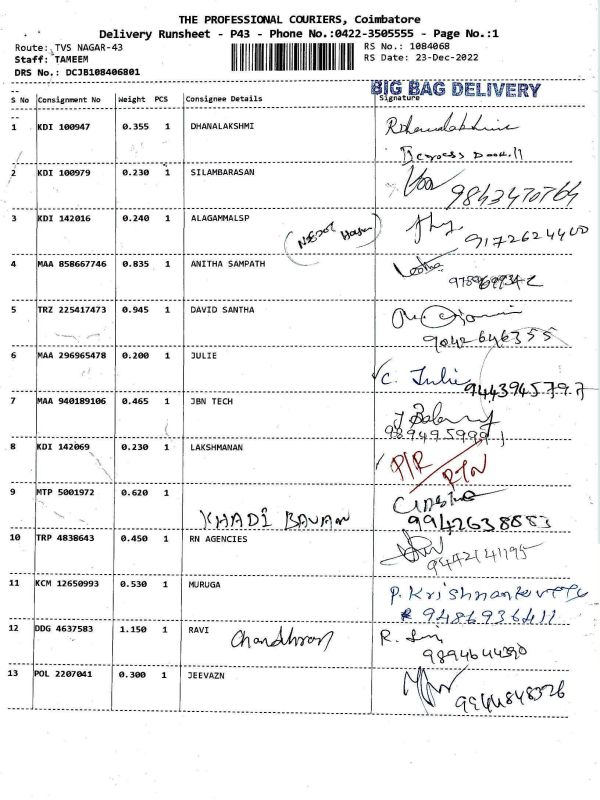 THE PROFESSIONAL COURIERS, Coimbatore
Delivery Runsheet - P43 - Phone No.:0422-3505555 - Page No.:1
Route: TVS NAGAR-43 RS No.: 1084068
Staff: TAMEEM RS Date: 23-Dec-2022
DRS No.: DCJB108406801
BIG BAG DELIVERY
S No Consignment No Weight PCS Consignee Details Signature
1 KDI 100947 0.355 1 DHANALAKSHMI
2 KDI 100979 0.230 1 SILAMBARASAN
9843470764
3 KDI 142016 0.240 1 ALAGAMMALSP
9172624400
4 MAA 858667746 0.835 1 ANITHA SAMPATH
5 TRZ 225417473 0.945 1 DAVID SANTHA
9042646355
6 MAA 296965478 0.200 1 JULIE
C. Julie 9443945797
7 MAA 940189106 0.465 1 JBN TECH
8 KDI 142069 0.230 1 LAKSHMANAN P/R
RTN
9 MTP 5001972 0.620 1
KHADI BAVAN 9942638883
10 TRP 4838643 0.450 1 RN AGENCIES
9442141195
11 KCM 12650993 0.530 1 MURUGA
9486936411
12 DDG 4637583 1.150 1 RAVI Chandhran
9894644390
13 POL 2207041 0.300 1 JEEVAZN
9944848326